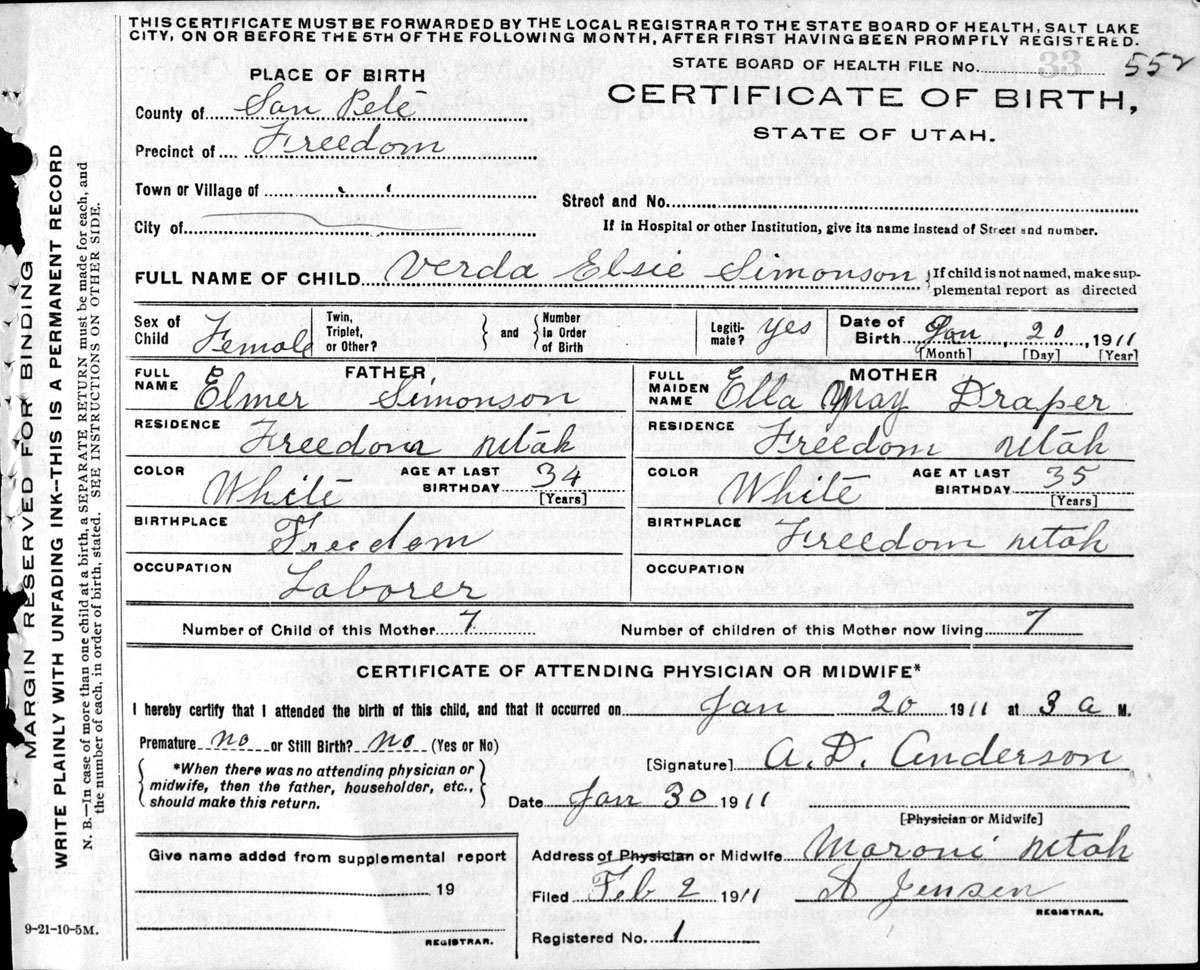 THIS CERTIFICATE MUST BE FORWARDED BY THE LOCAL REGISTRAR TO THE STATE BOARD OF HEALTH, SALT LAKE
CITY, ON OR BEFORE THE 5TH OF THE FOLLOWING MONTH, AFTER FIRST HAVING BEEN PROMPTLY REGISTERED.
STATE BOARD OF HEALTH FILE No. 33 552
PLACE OF BIRTH
CERTIFICATE OF BIRTH,
STATE OF UTAH.
County of San Pete
Precinct of Freedom
Town or Village of
Street and No.
City of
If in Hospital or other Institution, give its name Instead of Street and number.
FULL NAME OF CHILD Verda Elsie Simonson {If child is not named, make sup-
plemental report as directed
Sex of Child Female Twin, Triplet, or Other? } and { Number In Order of Birth Legiti-mate? yes Date of Birth Jan 20, 1911
[Month] [Day] [Year]
FATHER
MOTHER
FULL NAME Elmer Simonson
FULL MAIDEN NAME Ella May Draper
RESIDENCE Freedom Utah
RESIDENCE Freedom Utah
COLOR White AGE AT LAST BIRTHDAY 34 [Years]
COLOR White AGE AT LAST BIRTHDAY 35 [Years]
BIRTHPLACE Freedom
BIRTHPLACE Freedom Utah
OCCUPATION Laborer
OCCUPATION
Number of Child of this Mother 7 Number of children of this Mother now living 7
CERTIFICATE OF ATTENDING PHYSICIAN OR MIDWIFE*
I hereby certify that I attended the birth of this child, and that it occurred on Jan 20 1911 at 3 a M.
Premature no or Still Birth? no (Yes or No)
{ *When there was no attending physician or
midwife, then the father, householder, etc.,
should make this return. }
[Signature] A. D. Anderson
Date Jan 30 1911
[Physician or Midwife]
Give name added from supplemental report
19
REGISTRAR.
Address of Physician or Midwife Moroni Utah
Filed Feb 2 1911 A Jensen
REGISTRAR.
Registered No. 1
9-21-10-5M.
MARGIN RESERVED FOR BINDING
WRITE PLAINLY WITH UNFADING INK--THIS IS A PERMANENT RECORD
N. B.—In case of more than one child at a birth, a SEPARATE RETURN must be made for each, and
the number of each, in order of birth, stated. SEE INSTRUCTIONS ON OTHER SIDE.